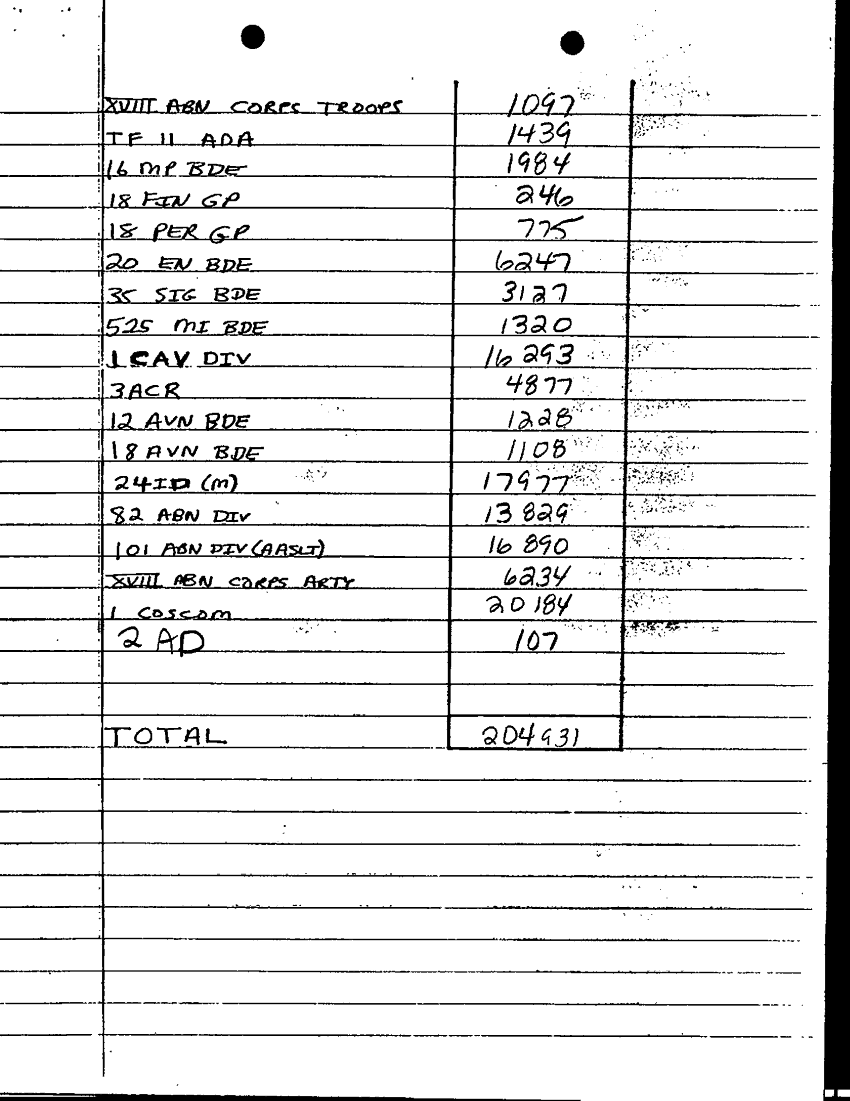 XVIII ABN CORPS TROOPS 1097
TF 11 ADA 1439
16 MP BDE 1984
18 FIN GP 246
18 PER GP 775
20 EN BDE 6247
35 SIG BDE 3127
525 MI BDE 1320
1 CAV DIV 16 293
3 ACR 4877
12 AVN BDE 1228
18 AVN BDE 1108
24 ID (M) 17977
82 ABN DIV 13 829
101 ABN DIV (AASLT) 16 890
XVIII ABN CORPS ARTY 6234
1 COSCOM 20 184
2 AD 107
TOTAL 204931